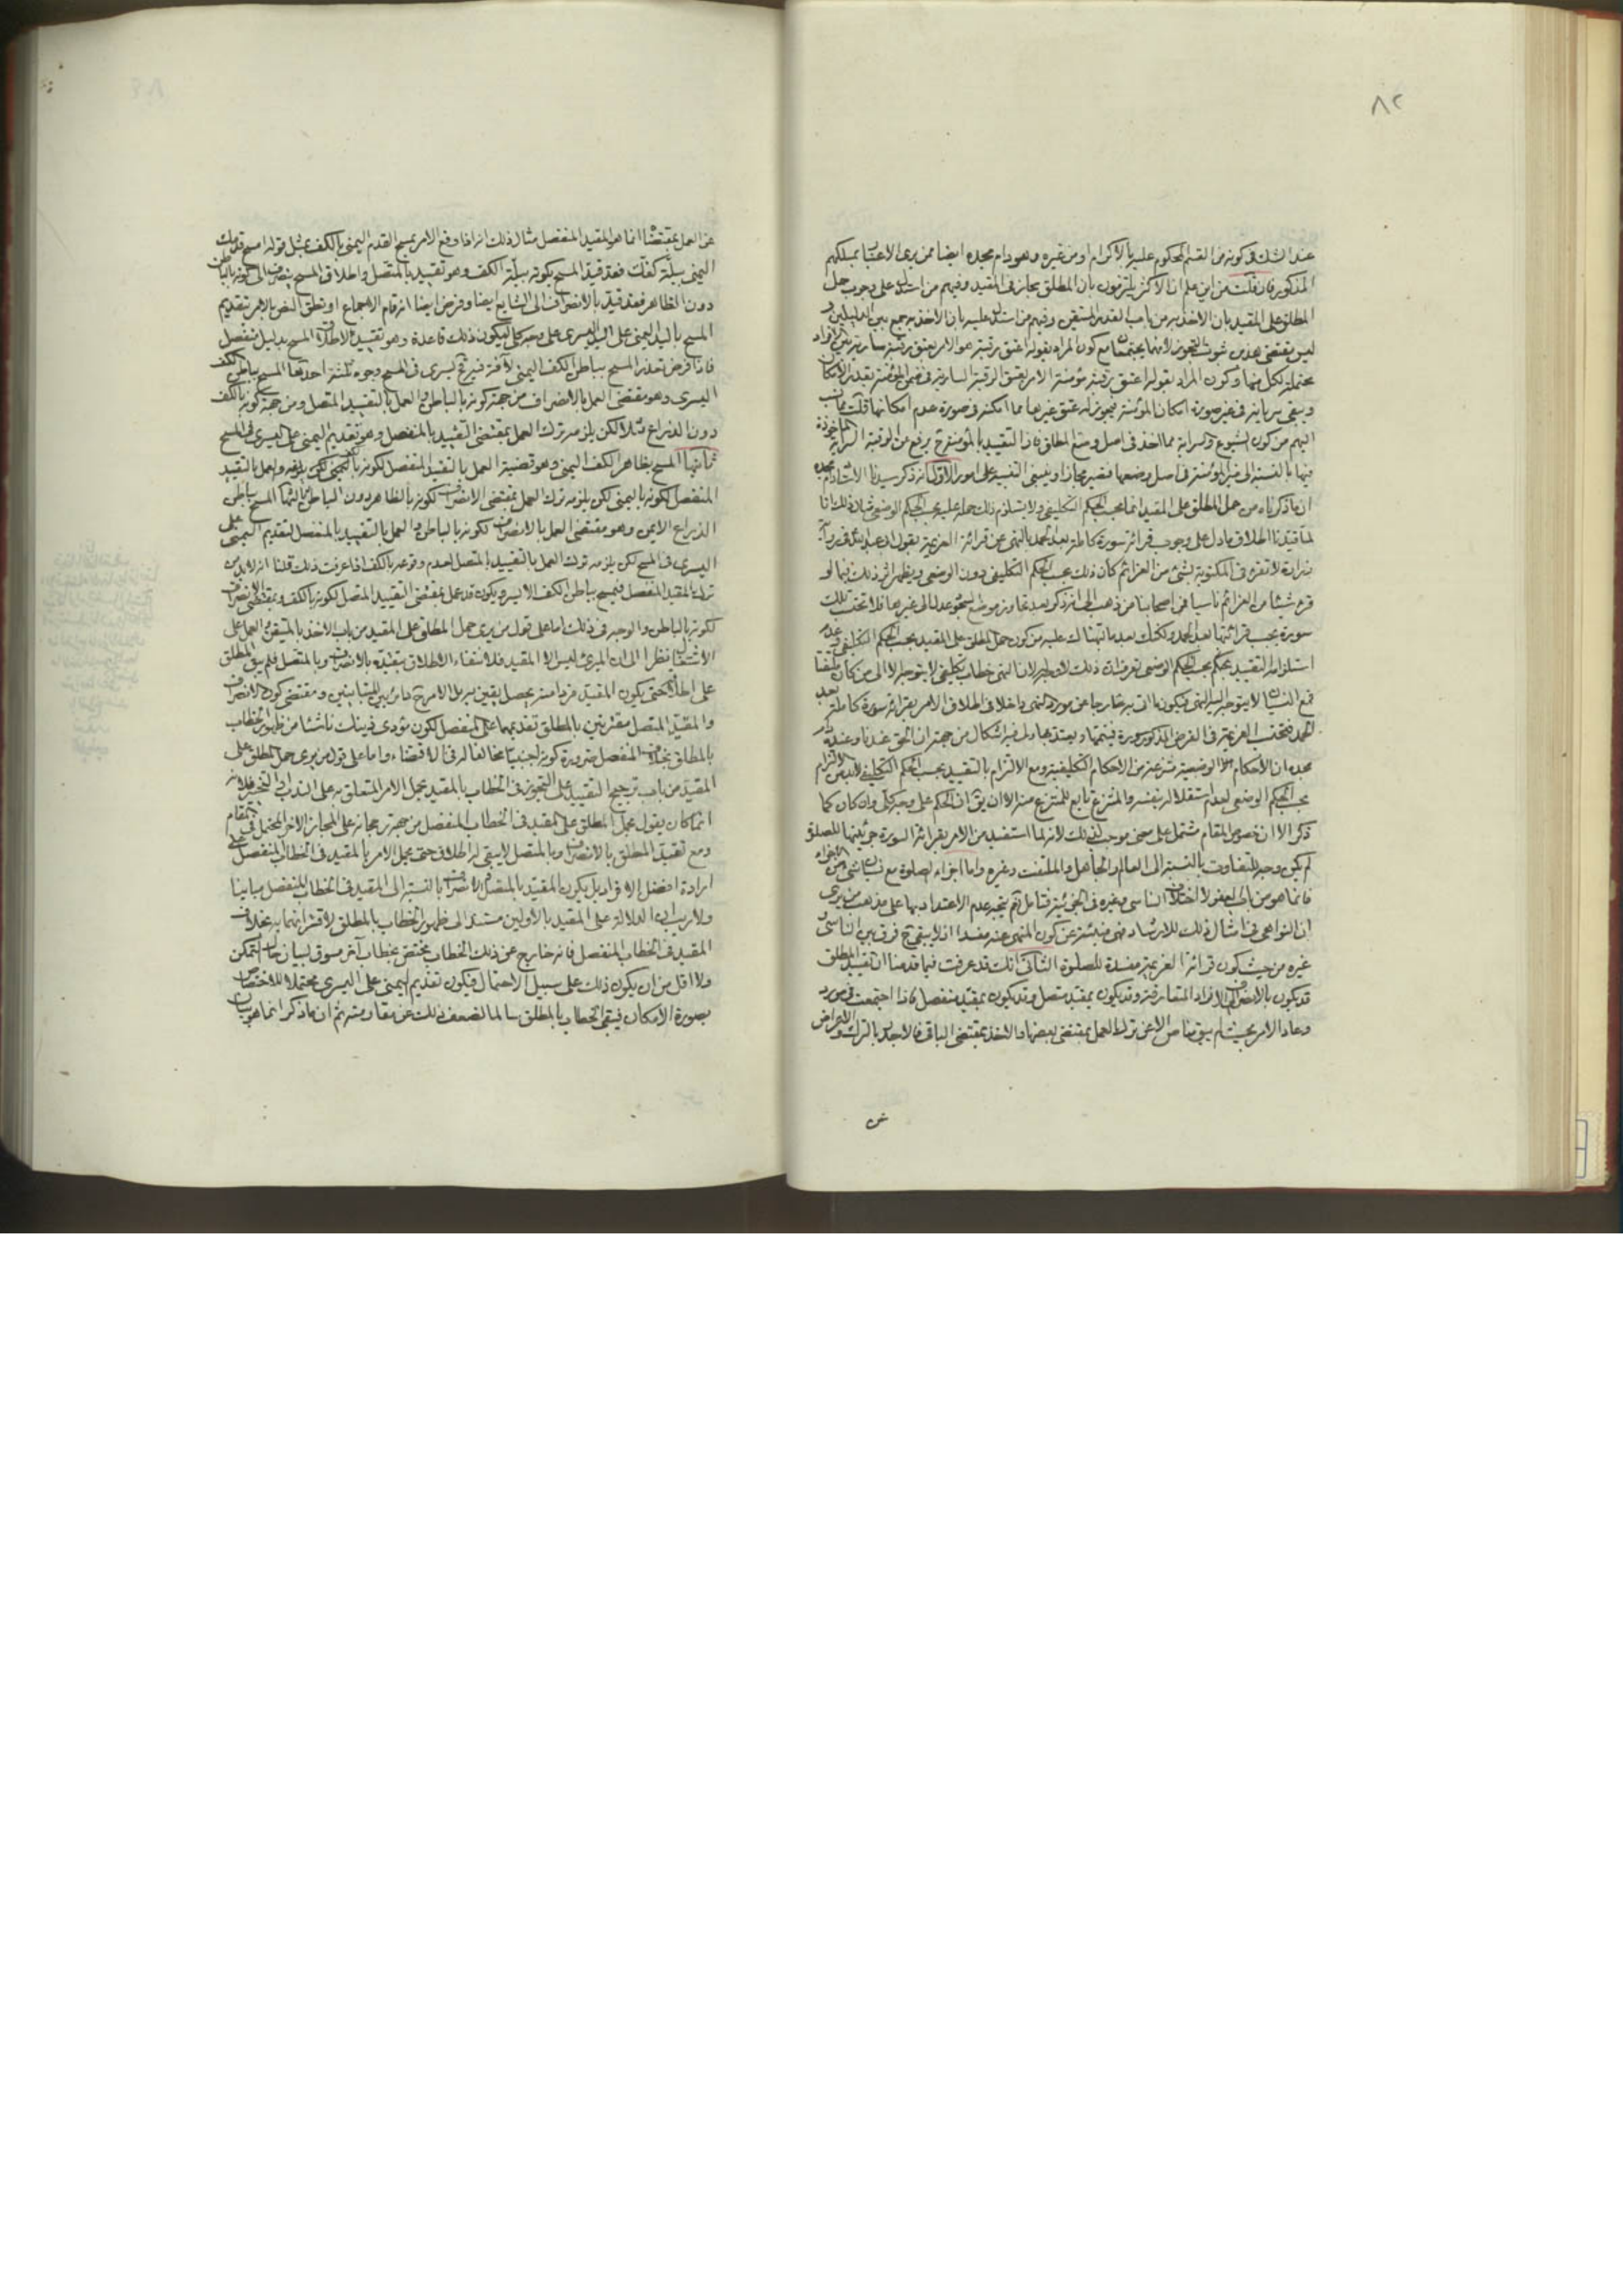 ٨٢
عند الشك في كونه من القسم المحكوم عليه بالاكرام او من غيره وهو دام مجده ايضا ممن يرى الاعتبار بمسلكهم
المذكور فان قلت من اين علم ان الاكثر يلتزمون بان المطلق مجاز في المقيد وفيهم من استدل على وجوب حمل
المطلق على المقيد بان الاخذ به من باب القدر المتيقن وفيهم من استدل عليه بان الاخذ به جمع بين الدليلين و
ليس مقتضى هذين ثبوت التجوز لانهما يجتمعان مع كون المراد بقوله اعتق رقبة هو الامر بعتق رقبة سارية في الافراد
محتملة لكل منها وكون المراد بقوله اعتق رقبة مؤمنة الامر بعتق الرقبة السارية في ضمن المؤمنة بقدر الامكان
ويبقى سريانه في غير صورة امكان المؤمنة يجوز له عتق غيرها مما امكنه في صورة عدم امكانها قلت ما نسب
اليهم من كون الشيوع والسراية مما اخذ في اصل وضع المطلق فاذا التقييد بالمؤمنة ح يرفع من الرقبة السراية الماخوذة
فيها بالنسبة الى غير المؤمنة في اصل وضعها فيصير مجازا وينبغي التنبيه على امور الاول انه ذكر سيدنا الاستاد دام مجده
ان ما ذكرناه من حمل المطلق على المقيد انما بحسب الحكم التكليفي ولا يستلزم ذلك حمله عليه بحسب الحكم الوضعي مثال ذلك انا
لما قيدنا اطلاق ما دل على وجوب قرائة سورة كاملة بعد الحمد بالنهى عن قرائة العزيمة بقول ابي عبد الله في رواية
زرارة لا تقرء في المكتوبة بشئ من العزائم كان ذلك بحسب الحكم التكليفي دون الوضعي ويظهر اثر ذلك فيما لو
قرء شيئا من العزائم ناسيا فان اصحابنا من ذهب الى انه ذكر بعد تجاوز موضع السجود عدل الى غيرها فلا تحتسب تلك
سورة يجب قرائتها بعد الحمد ولكنك بعد ما نبهناك عليه من كون حمل المطلق على المقيد بحسب الحكم التكليفي وعدم
استلزامه التقييد بحكم بحسب الحكم الوضعي تعرف ان ذلك لا وجه له لان النهى خطاب تكليفي لا يتوجه الا الى من كان ملتفتا
فمع النسيان لا يتوجه اليه النهى فيكون ما اتى به خارجا عن مورد النهى داخلا في اطلاق الامر بقرائة سورة كاملة بعد
الحمد فتحتسب العزيمة في الفرض المذكور سورة فيتمها ويعتد بها ولى فيه اشكال من جهة ان الحق عندنا وعنده دام
مجده ان الاحكام الوضعية منتزعة من الاحكام التكليفية ومع الالتزام بالتقييد بحسب الحكم التكليفي لابد من الالتزام
بحسب الحكم الوضعي لعدم استقلاله بنفسه والمنتزع تابع للمنتزع منه الا ان يق ان الحكم على وجه كلي وان كان كما
ذكر الا ان خصوص المقام مشتمل على معنى موجب لذلك لانه لما استفيد من الامر بقرائة السورة جزئيتها للصلوة
لم يكن وجه للتفاوت بالنسبة الى العالم والجاهل والملتفت وغيره واما اجزاء الصلوة مع نسيان شئ من الاجزاء
فانما هو من باب العفو لا اختلاف الناسى وغيره في الجزئية فتامل ثم يتجه عدم الاعتداد بها على مذهب من يرى
ان النواهي في امثال ذلك للارشاد فهى منبئة عن كون المنهى عنه مفسدا اذ لا يبقى ح فرق بين الناسى و
غيره من حيث كون قرائة العزيمة مفسدة للصلوة الثاني انك قد عرفت فيما قدمنا ان تقييد المطلق
قد يكون بالانصراف الى الافراد المتعارفة وقد يكون بمقيد متصل وقد يكون بمقيد منفصل فاذا اجتمعت في مورد
ودعا الامر بحيث لم يبق مناص الا عن ترك العمل بمقتضى بعضها والاخذ بمقتضى الباقي فالاجدر بالترك والاعراض
عن
عن العمل بمقتضاه انما هو المقيد المنفصل مثال ذلك انه اذا وقع الامر بمسح القدم اليمنى بالكف بمثل قوله امسح قدمك
اليمنى ببلة كفك فقد قيد المسح بكونه ببلة الكف وهو تقييد بالمتصل واطلاق المسح ينصرف الى كونه بالباطن
دون الظاهر فقد قيد بالانصراف الى الشايع ايضا وفرض ايضا انه قام الاجماع او نطق النص بالامر بتقديم
المسح باليد اليمنى على اليد اليسرى على وجه كلي ليكون ذلك قاعدة وهو تقييد لاطلاق المسح بدليل منفصل
فاذا فرض تعذر المسح بباطن الكف اليمنى لآفة فيه ح يسرى في المسح وجوه ثلثة احدها المسح بباطن الكف
اليسرى وهو مقتضى العمل بالانصراف من جهة كونه بالباطن والعمل بالتقييد المتصل ومن جهة كونه بالكف
دون الذراع مثلا لكن يلزمه ترك العمل بمقتضى التقييد بالمنفصل وهو تقديم اليمنى على اليسرى في المسح
ثانيها المسح بظاهر الكف اليمنى وهو قضية العمل بالتقييد المنفصل لكونه باليمنى لكن يلزمه والعمل بالتقييد
المنفصل لكونه باليمنى لكن يلزمه ترك العمل بمقتضى الانصراف لكونه بالظاهر دون الباطن ثالثها المسح بباطن
الذراع الايمن وهو مقتضى العمل بالانصراف لكونه بالباطن والعمل بالتقييد بالمنفصل لتقديم اليمنى على
اليسرى في المسح لكن يلزمه ترك العمل بالتقييد بالمتصل لعدم وقوعه بالكف اذا عرفت ذلك قلنا انه لابد من
ترك المقيد المنفصل فيمسح بباطن الكف الايسر ويكون قد عمل بمقتضى التقييد المتصل لكونه بالكف وبمقتضى الانصراف
لكونه بالباطن والوجه في ذلك اما على قول من يرى حمل المطلق على المقيد من باب الاخذ بالمتيقن والعمل على
الاشتغال نظرا الى ان المبرئ ليس الا المقيد فلانتفاء الاطلاق بتقييده بالانصراف وبالمتصل فلم يبق المطلق
على اطلاقه حتى يكون المقيد فردا منه يحصل يقين به بل الامر ح دائر بين المتباينين ومقتضى كون الانصراف
والمقيد المتصل مقترنين بالمطلق تقديمهما على المنفصل لكون مؤدى ذينك ناشئا من ظهور الخطاب
بالمطلق بخلاف المنفصل ضرورة كونه اجنبيا مخالفا له في الاقتضاء واما على قول من يرى حمل المطلق على
المقيد من باب ترجيح التقييد على التجوز في الخطاب بالمقيد بحمل الامر المتعلق به على الندب او التخيير فلانه
انما كان يقول بحمل المطلق على المقيد في الخطاب المنفصل من جهة رجحانه على المجاز الاخر المحتمل في المقام
ومع تقييد المطلق بالانصراف وبالمتصل لا يبقى له اطلاق حتى يحمل الامر بالمقيد في الخطاب المنفصل على
ارادة افضل الافراد بل يكون المقيد بالمتصل والانصراف بالنسبة الى المقيد في الخطاب المنفصل مباينا
ولا ريب ان الدلالة على المقيد بالاولين مستند الى ظهور الخطاب بالمطلق لاقترانهما به بخلاف
المقيد في الخطاب المنفصل فانه خارج عن ذلك الخطاب مختص بخطاب آخر مسوق لبيان حال التمكن
ولا اقل من ان يكون ذلك على سبيل الاحتمال فيكون تقديم اليمنى على اليسرى محتملا للاختصاص
بصورة الامكان فيبقى الخطاب بالمطلق سالما لضعف ذلك عن مقاومته ثم ان ما ذكر انما هو بيان